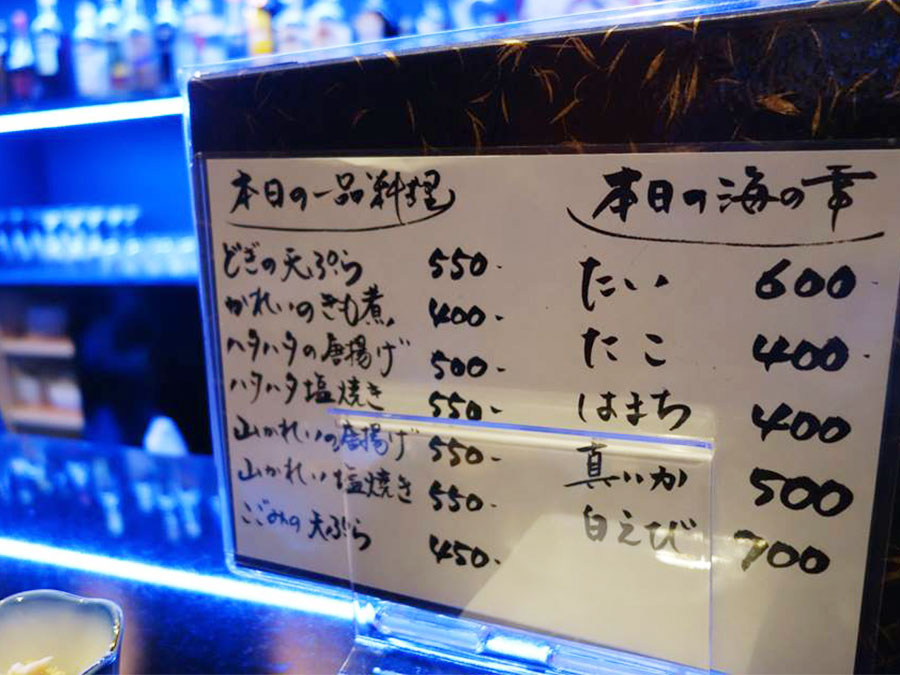 本日の一品料理
どぎの天ぷら 550-
かれいのきも煮 400-
ハタハタの唐揚げ 500-
ハタハタ塩焼き 550-
山かれいの唐揚げ 550-
山かれい塩焼き 550-
こごみの天ぷら 450-
本日の海の幸
たい 600-
たこ 400-
はまち 400
真いか 500
白えび 700